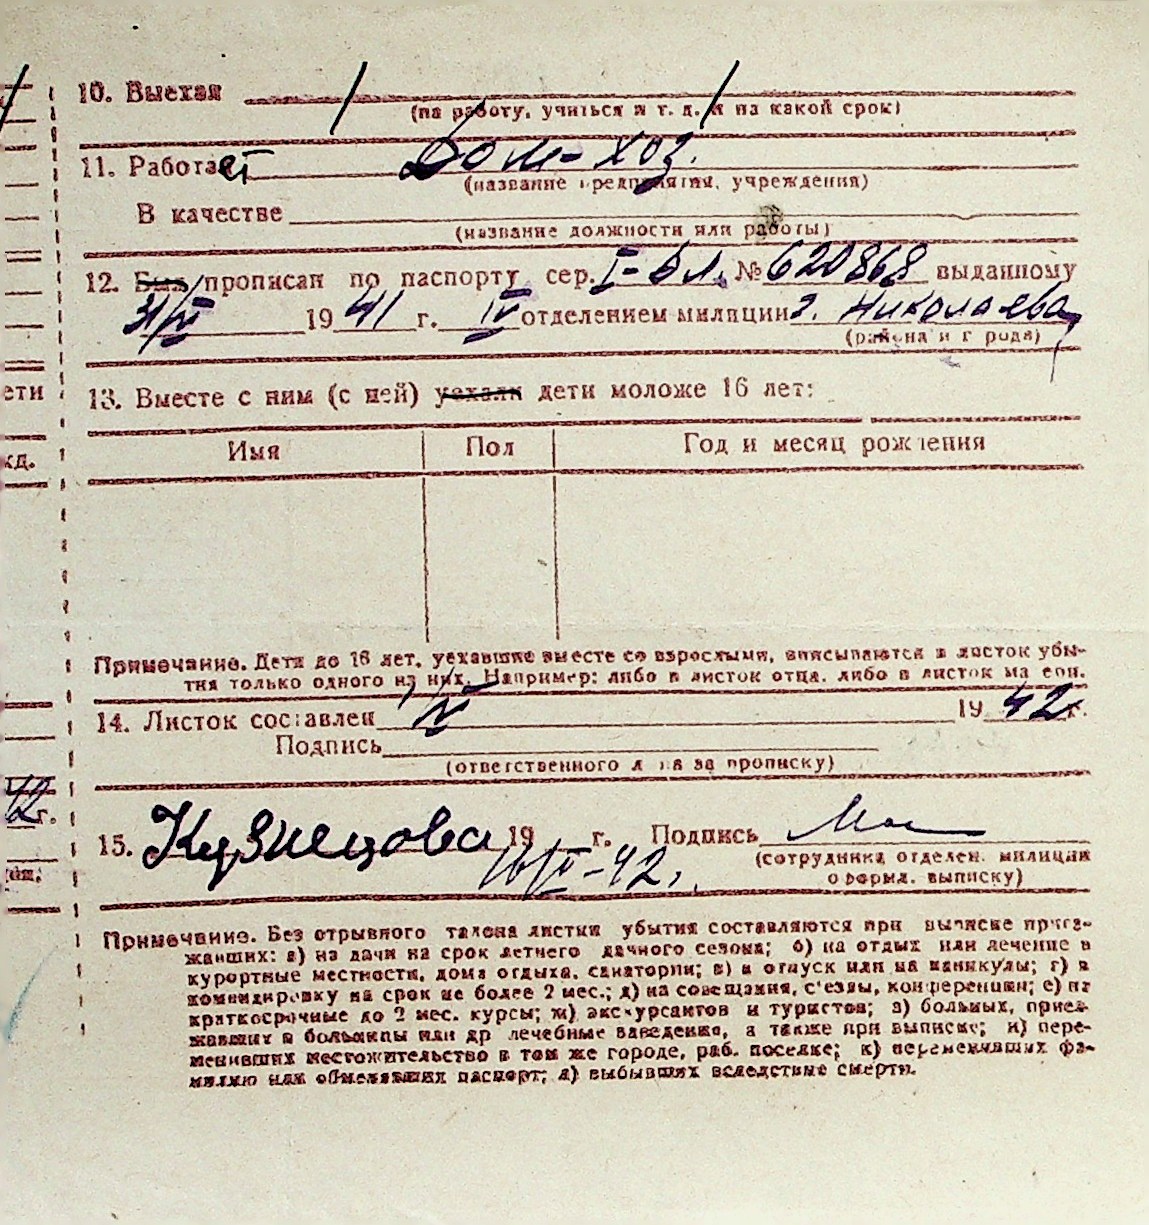 10. Выехал
(на работу, учиться и т. д. и на какой срок)
11. Работает Дом-хоз.
(название предприятия, учреждения)
В качестве
(название должности или работы)
12. Был прописан по паспорту сер. I-БЛ. № 620868 выданному
31/V 1941 г. IV отделением милиции г. Николаева
(района и города)
13. Вместе с ним (с ней) уехали дети моложе 16 лет:
Имя Пол Год и месяц рождения
Примечание. Дети до 16 лет, уехавшие вместе со взрослыми, вписываются в листок убы-
тия только одного из них. Например: либо в листок отца, либо в листок матери.
14. Листок составлен 1942 г.
Подпись
(ответственного лица за прописку)
15. Кузнецова 19 г. Подпись
(сотрудника отделен. милиции
оформл. выписку)
Примечание. Без отрывного талона листки убытия составляются при выписке приез-
жавших: а) на дачи на срок летнего дачного сезона; б) на отдых или лечение в
курортные местности, дома отдыха, санатории; в) в отпуск или на каникулы; г) в
командировку на срок не более 2 мес.; д) на совещания, с'езды, конференции; е) на
краткосрочные до 2 мес. курсы; ж) экскурсантов и туристов; з) больных, приез-
жавших в больницы или др лечебные заведения, а также при выписке; и) пере-
менивших местожительство в том же городе, раб. поселке; к) переменивших фа-
милию или обменявших паспорт; л) выбывших вследствие смерти.